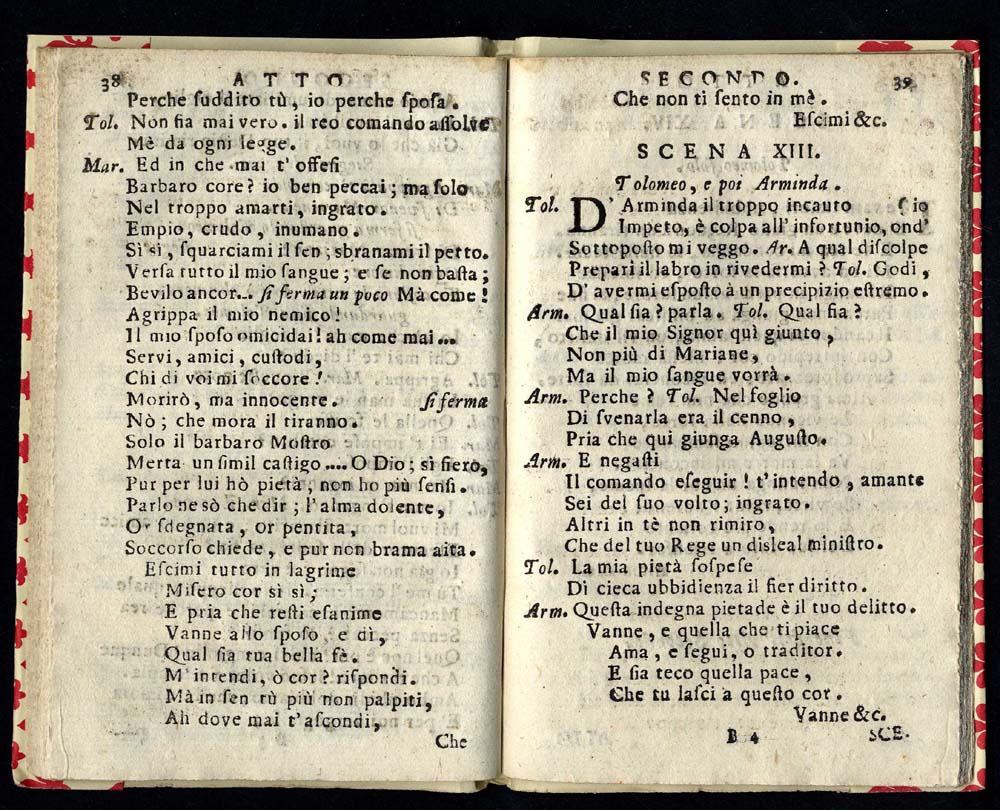 38 ATTO
Perche ſuddito tù, io perche ſpoſa.
Tol. Non ſia mai vero. il reo comando aſſolve
Mè da ogni legge.
Mar. Ed in che mai t' offeſi
Barbaro core? io ben peccai; ma ſolo
Nel troppo amarti, ingrato.
Empio, crudo, inumano.
Sì sì, ſquarciami il ſen; sbranami il petto.
Verſa tutto il mio ſangue; e ſe non baſta;
Bevilo ancor... ſi ferma un poco Mà come!
Agrippa il mio nemico!
Il mio ſpoſo omicidai! ah come mai...
Servi, amici, cuſtodi,
Chi di voi mi ſoccore!
Morirò, ma innocente. ſi ferma
Nò; che mora il tiranno.
Solo il barbaro Moſtro
Merta un ſimil caſtigo.... O Dio; sì fiero,
Pur per lui hò pietà; non ho più ſenſi.
Parlo ne sò che dir; l'alma dolente,
Or ſdegnata, or pentita,
Soccorſo chiede, e pur non brama aita.
Eſcimi tutto in lagrime
Miſero cor sì sì;
E pria che reſti eſanime
Vanne allo ſpoſo, e dì,
Qual ſia tua bella fè.
M' intendi, ò cor? riſpondi.
Mà in ſen tù più non palpiti,
Ah dove mai t' aſcondi,
Che
SECONDO. 39
Che non ti ſento in mè.
Eſcimi &c.
SCENA XIII.
Tolomeo, e poi Arminda.
Tol. D' Arminda il troppo incauto (io
Impeto, è colpa all' infortunio, ond'
Sottopoſto mi veggo. Ar. A qual diſcolpe
Prepari il labro in rivedermi? Tol. Godi,
D' avermi eſpoſto à un precipizio eſtremo.
Arm. Qual ſia? parla. Tol. Qual ſia?
Che il mio Signor quì giunto,
Non più di Mariane,
Ma il mio ſangue vorrà.
Arm. Perche? Tol. Nel foglio
Di ſvenarla era il cenno,
Pria che qui giunga Auguſto.
Arm. E negaſti
Il comando eſeguir! t'intendo, amante
Sei del ſuo volto; ingrato.
Altri in tè non rimiro,
Che del tuo Rege un disleal miniſtro.
Tol. La mia pietà ſoſpeſe
Di cieca ubbidienza il fier diritto.
Arm. Queſta indegna pietade è il tuo delitto.
Vanne, e quella che ti piace
Ama, e ſegui, o traditor.
E ſia teco quella pace,
Che tu laſci a queſto cor.
Vanne &c.
B 4 SCE-